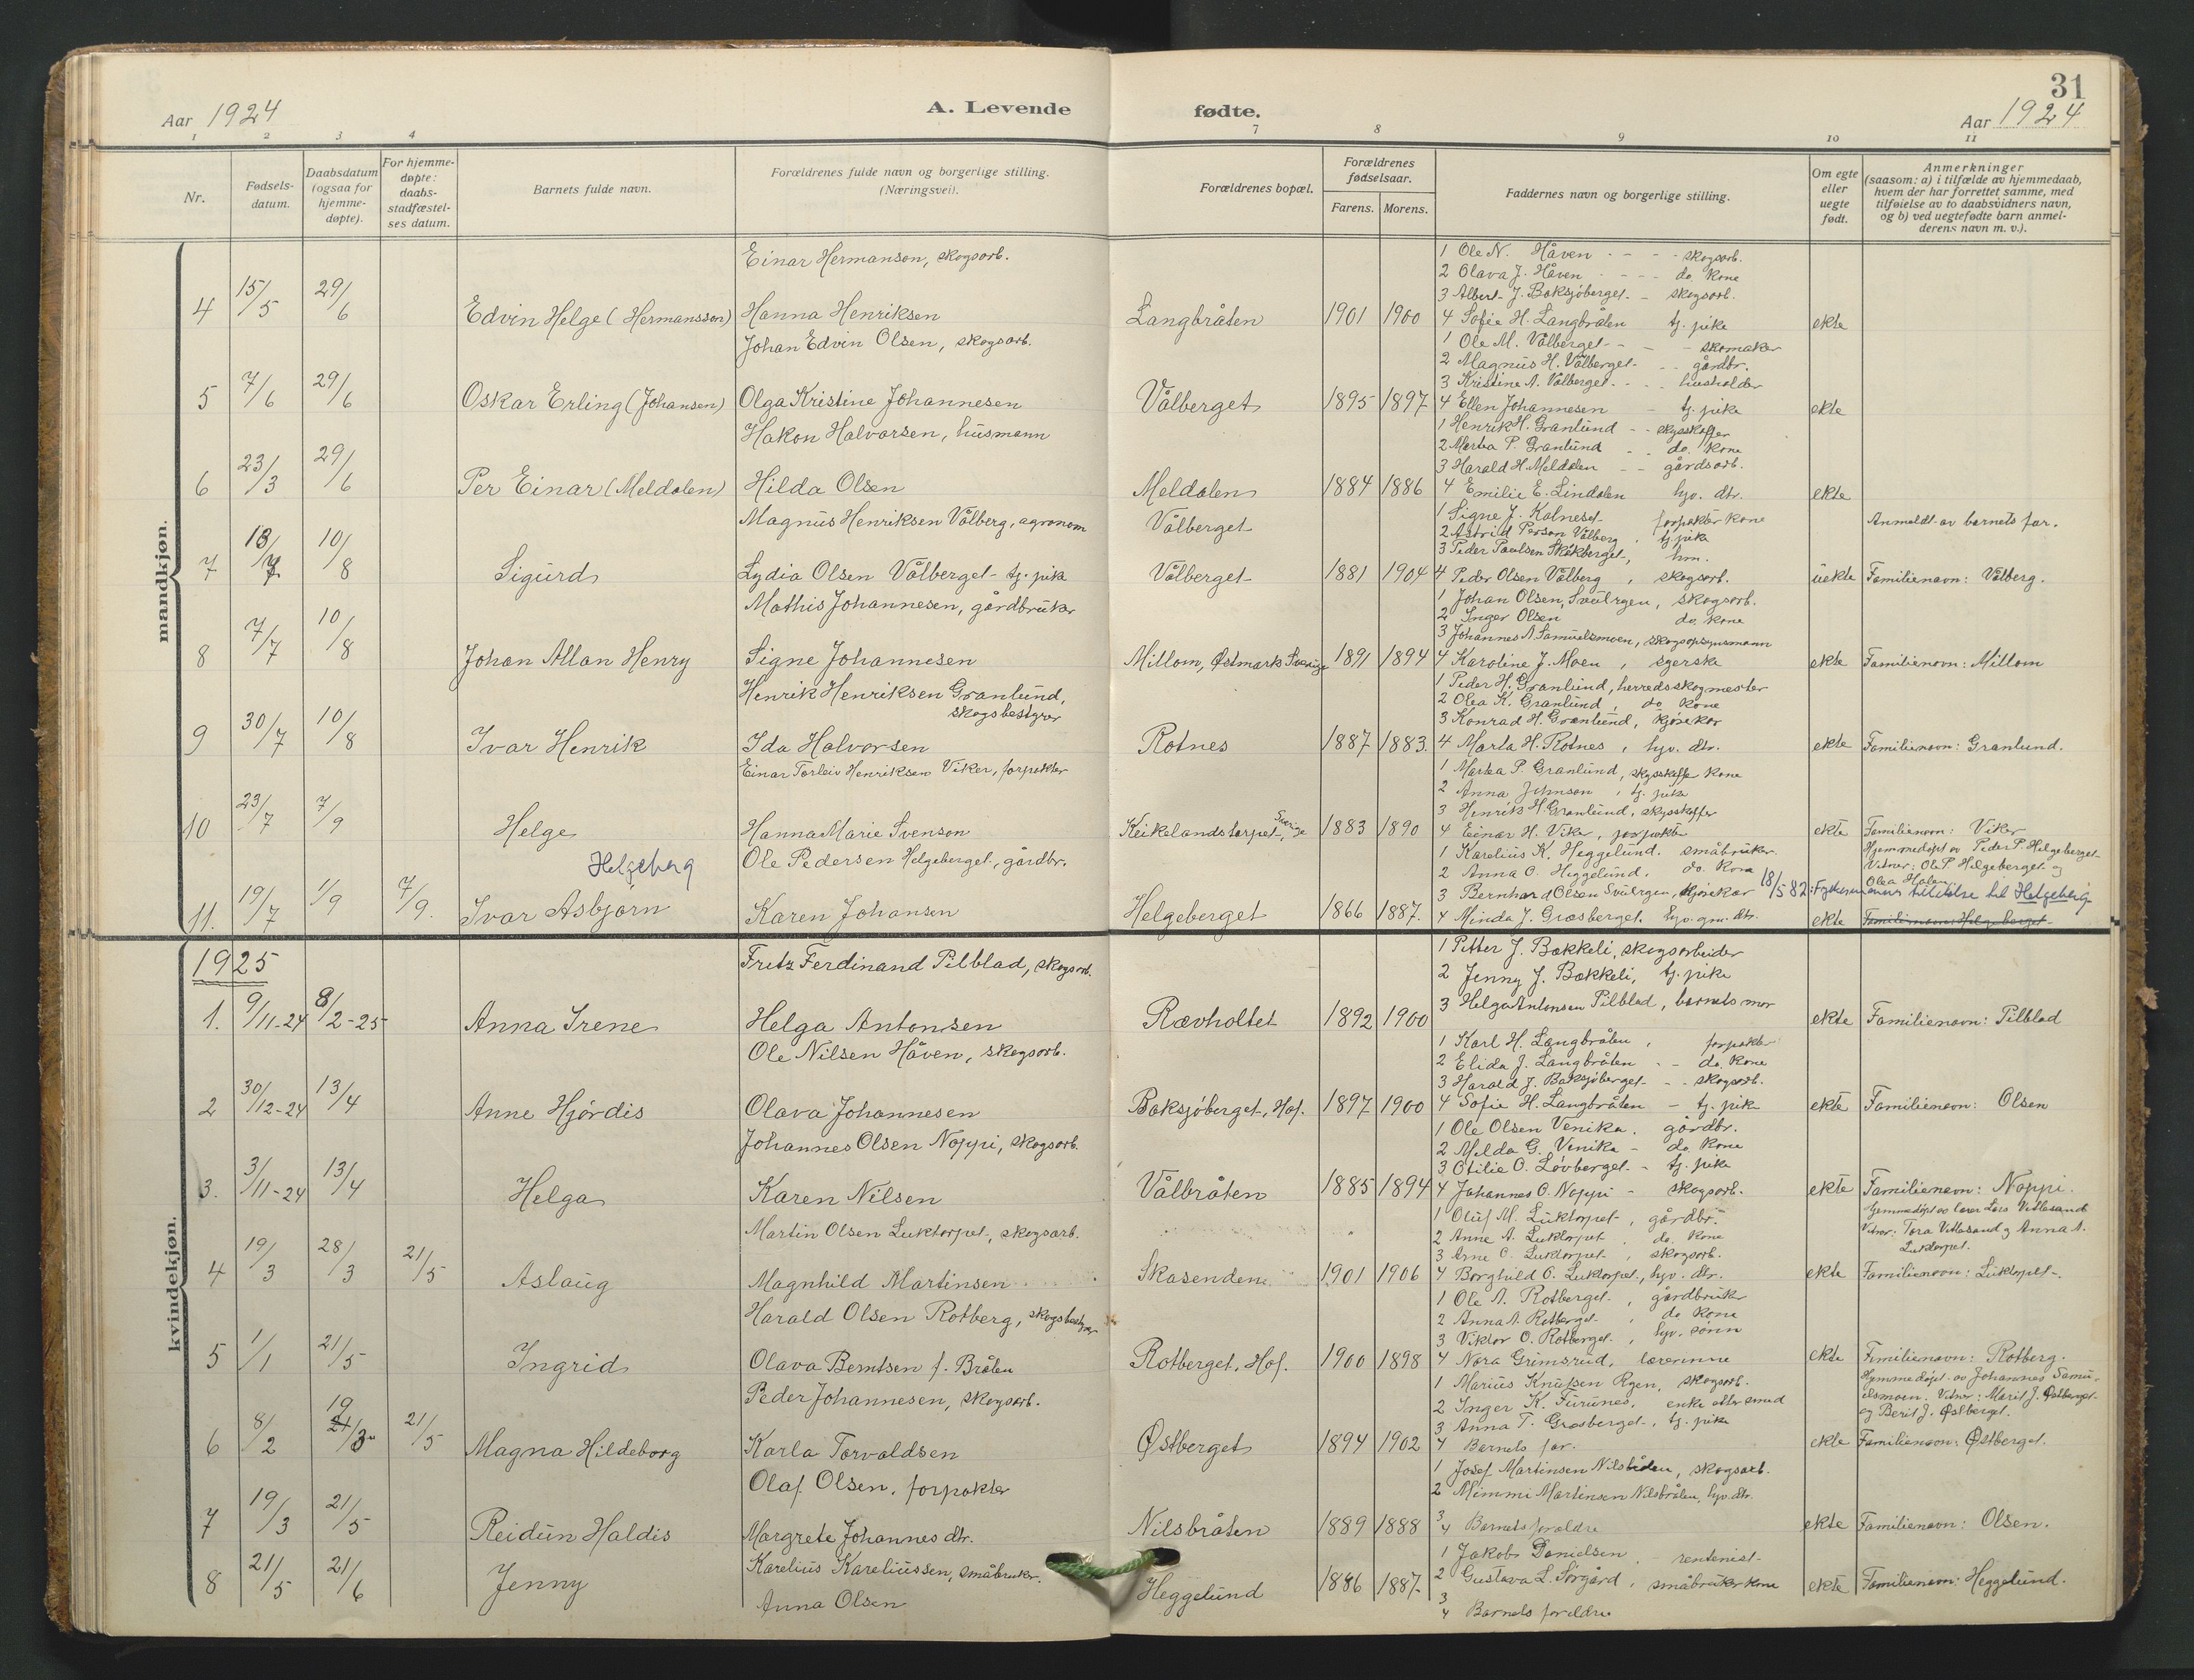 31
Aar 1924
A. Levende fødte.
Aar 1924
1 2 3 4 7 8 9 10 11
Nr.
Fødsels-datum.
Daabsdatum (ogsaa for hjemme-døpte).
For hjemme-døpte: daabs-stadfæstel-ses datum.
Barnets fulde navn.
Forældrenes fulde navn og borgerlige stilling. (Næringsvei).
Forældrenes bopæl.
Forældrenes fødselsaar.
Farens. Morens.
Faddernes navn og borgerlige stilling.
Om egte eller uegte født.
Anmerkninger (saasom: a) i tilfælde av hjemmedaab, hvem der har forrettet samme, med tilføielse av to daabsvidners navn, og b) ved uegtefødte barn anmel-derens navn m. v.).
mandkjøn.
Einar Hermanson, skogsarb.
1 Ole N. Håven - - - skogsarb.
2 Olava J. Håven - - - do. kone
3 Albert J. Baksjöberget - skogsarb.
4 15/5 29/6 Edvin Helge (Hermansson) Hanna Henriksen Langbråten 1901 1900 4 Sofie H. Langbråten tj. pike ekte
Johan Edvin Olsen, skogsarb.
1 Ole M. Vålberget - - - skomaker
2 Magnus H. Vålberget - - gårdbr.
3 Kristine A. Vålberget - - husholder
5 7/6 29/6 Oskar Erling (Johansen) Olga Kristine Johannesen Vålberget 1895 1897 4 Ellen Johannesen - tj. pike ekte
Hakon Halvorsen, husmann
1 Henrik H. Granlund - - skysskaffer
2 Marta P. Granlund - - do. kone
3 Harald H. Meldalen - - gårdsarb.
6 23/3 29/6 Per Einar (Meldalen) Hilda Olsen Meldalen 1884 1886 4 Emilie E. Lindalen hjv. dtr. ekte
Magnus Henriksen Vålberg, agronom Vålberget
1 Signe J. Kalneset forpakter kone Anmeldt av barnets far.
2 Astrid Person Vålberg, tj. pike
3 Peder Paulsen Skåkberget, hm.
7 13/7 10/8 Sigurd Lydia Olsen Vålberget tj. pik Vålberget 1881 1904 4 Peder Olsen Vålberg, skogsarb. uekte Familienavn: Vålberg.
Mathis Johannesen, gårdbruker
1 Johan Olsen, Svulrgen, skogsarb.
2 Inger Olsen do. kone
3 Johannes A. Samuelsmoen, skogopsynsmann
8 7/7 10/8 Johan Allan Henry Signe Johannesen Millom, Østmark Sverige 1891 1894 4 Karoline J. Moen, sgerske ekte Familienavn: Millom
Henrik Henriksen Granlund, skogsbestyrer
1 Peder H. Granlund, herredsskogmester
2 Olea K. Granlund, do. kone
3 Konrad H. Granlund, kjørekar
9 30/7 10/8 Ivar Henrik Ida Halvorsen Rotnes 1887 1883. 4 Marta H. Rotnes, hjv. dtr. ekte Familienavn: Granlund.
Einar Torleiv Henriksen Viker, forpakter
1 Marta P. Granlund, skysskaffer kone
2 Anna Johnson, tj. pike
3 Henrik H. Granlund, skysskaffer
10 23/7 7/9 Helge Hanna Marie Svenson Keikelandstorpet, Sverige 1883 1890 4 Einar H. Viker, forpakter ekte Familienavn: Viker
Helgeberg
Ole Pedersen Helgeberget, gårdbr.
1 Karelius K. Heggelund. småbruker
2 Anna O. Heggelund. do. kone
3 Bernhard Olsen Svulrgen, kjørekar
Hjemmedøpt av Peder P. Helgeberget
Vitner: Ole P. Helgeberget og Olea Holen
18/5 82: Fylkesmannens tillatelse til Helgeberg
11. 19/7 1/9 7/9. Ivar Asbjørn Karen Johansen Helgeberget 1866 1887. 4 Minda J. Gråsberget. hjv. gm. dtr. ekte Familienavn: Helgeberget
1925
kvindekjøn.
Fritz Ferdinand Pilblad, skogsarb.
1 Petter J. Bækkeli, skogsarbeider
2 Jenny J. Bækkeli, tj. pike
3 Helga Antonsen Pilblad, barnets mor
1. 9/11-24 8/2-25 Anna Irene Helga Antonsen Rævholtet 1892 1900 ekte Familienavn: Pilblad
Ole Nilsen Håven, skogsarb.
1 Karl H. Langbråten, forpakter
2 Elida J. Langbråten - - do. kone
3 Harald J. Baksjøberget - - skogsarb.
2 30/12-24 13/4 Anne Hjördis Olava Johannesen Baksjøberget, Hof. 1897 1900 4 Sofie H. Langbråten - tj. pike ekte Familienavn: Olsen
Johannes Olsen Noppi, skogsarb.
1 Ole Olsen Venika. gårdbr.
2 Milda G. Venika - do. kone
3 Otilie O. Løvberget - tj. pike
3. 3/11-24 13/4 Helga Karen Nilsen Vålbråten 1885 1894 4 Johannes O. Noppi - skogsarb. ekte Familienavn: Noppi.
Martin Olsen Luktorpet, skogsarb.
1 Oluf M. Luktorpet, gårdbr.
2 Anne A. Luktorpet, do. kone
3 Arne O. Luktorpet, skogsarb.
Hjemmedøpt av lærer Lars Vitlasand
Vitner: Tora Vitlasand og Anna A. Luktorpet.
4 19/3 28/3 21/5 Aslaug Magnhild Martinsen Skasenden 1901 1906 4 Borghild O. Luktorpet, hjv. dtr. ekte Familienavn: Luktorpet.
Harald Olsen Rotberg, skogsbestyrer
1 Ole A. Rotberget, gårdbruker
2 Anna A. Rotberget, do. kone
3 Viktor O. Rotberget, hjv. sønn
5 1/1 21/5 Ingrid Olava Berntsen f. Bråten Rotberget, Hof. 1900 1898 4 Nora Grimsrud, lærerinne ekte Familienavn: Rotberg.
Peder Johannesen, skogsarb.
1 Marius Knutsen Ryen, skogsarb.
2 Inger K. Furunes, enke etter smed
3 Anna T. Gråsberget, tj. pike
Hjemmedøpt av Johannes Samuelsmoen. Vitner: Marit J. Østberget og Berit J. Østberget.
6 8/2 19/3 21/5 Magna Hildeborg Karla Torvaldsen Østberget 1894 1902 4 Barnets far. ekte Familienavn: Østberget.
Olaf Olsen, forpakter
1 Josef Martinsen Nilsbråten, skogsarb.
2 Mimmi Martinsen Nilsbråten, hjv. dtr.
7 19/3 21/5 Reidun Haldis Margrete Johannes dtr. Nilsbråten 1889 1888 3 4 Barnets foreldre ekte Familienavn: Olsen.
Karelius Kareliussen, småbruker.
1 Jakob Danielsen - rentenist
8 21/5 21/6 Jenny Anna Olsen Heggelund 1886 1887 2 Gustava L. Sørgård, småbruker kone ekte Familienavn: Heggelund.
3 4 Barnets foreldre